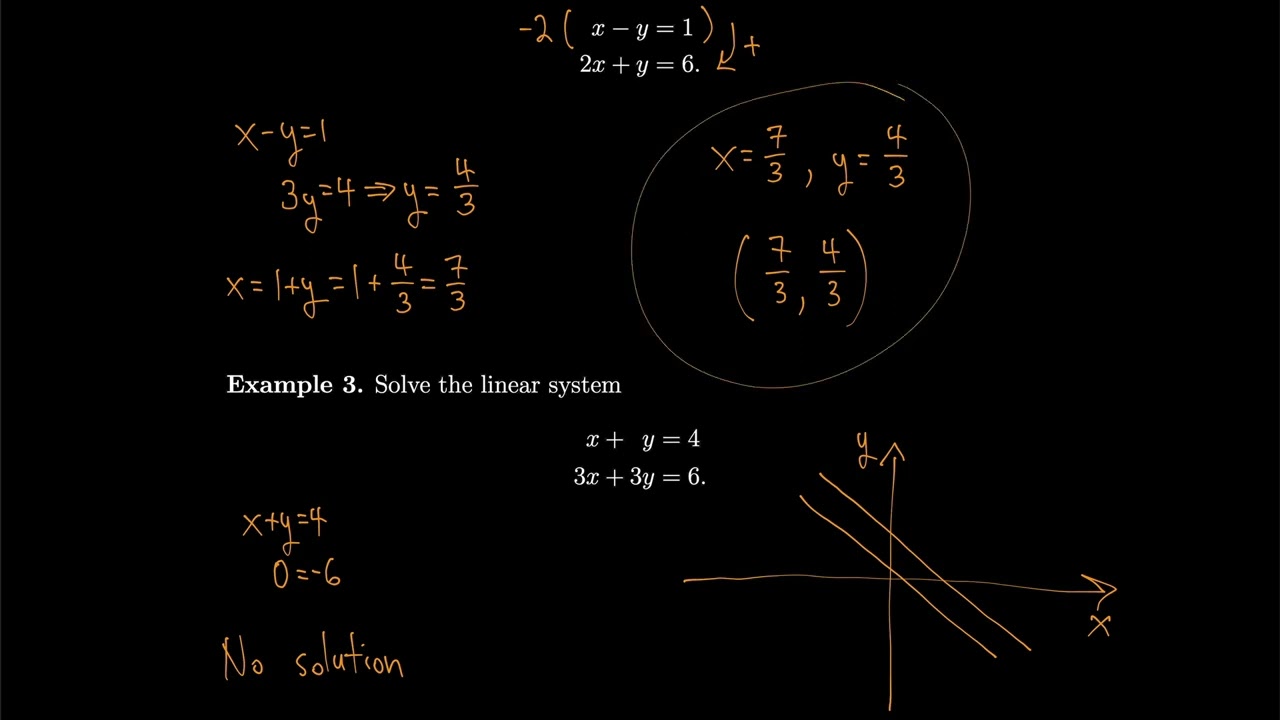 -2( x − y = 1 ) +
2x + y = 6.
x-y=1
3y=4 ⇒ y= 4/3
x=1+y=1+ 4/3 = 7/3
x= 7/3 , y= 4/3
( 7/3 , 4/3 )
Example 3. Solve the linear system
x + y = 4
3x + 3y = 6.
x+y=4
0=-6
No solution
y
x